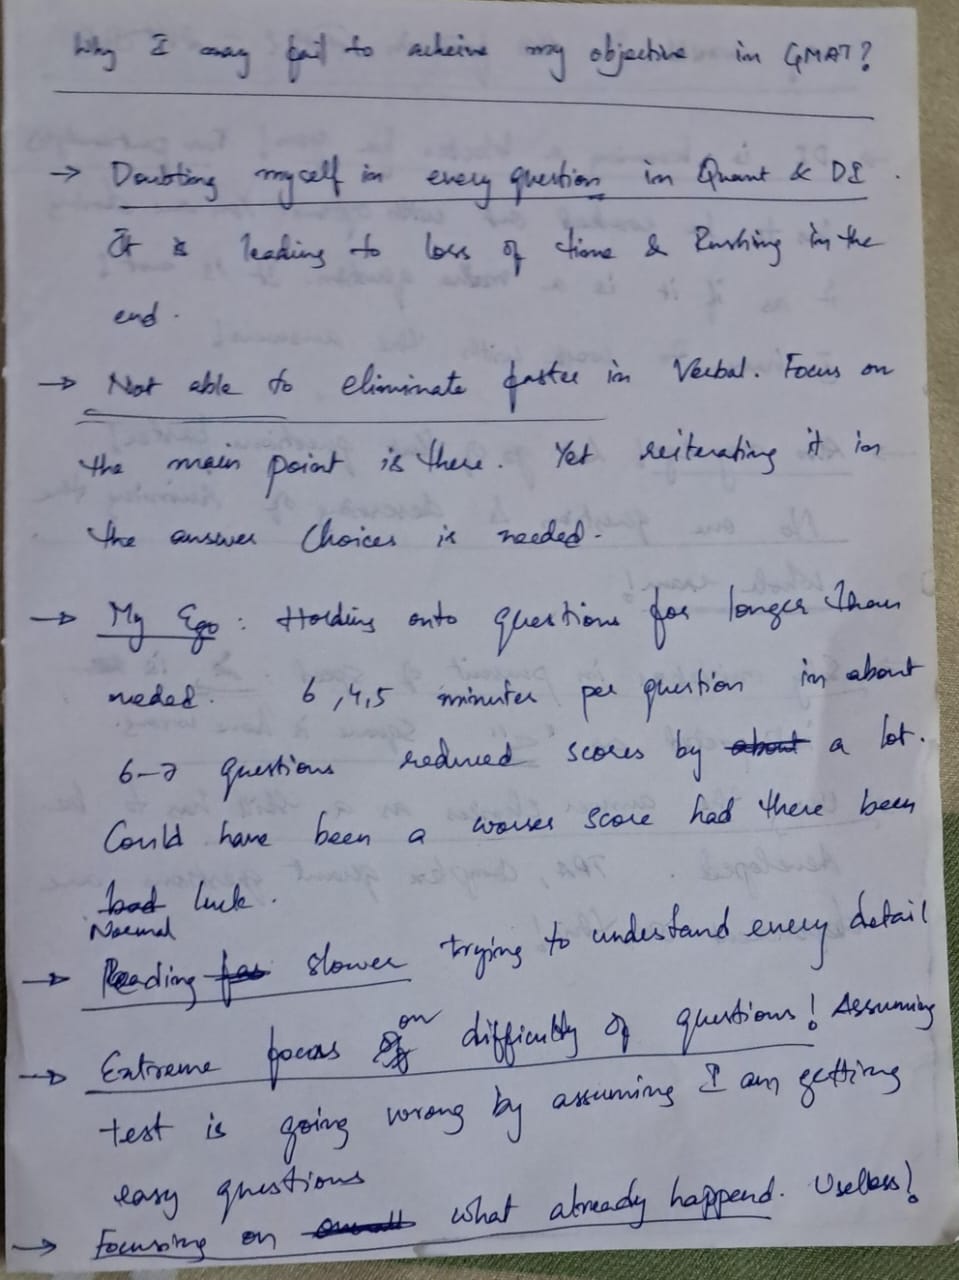 Why I may fail to acheive my objective in GMAT?
→ Doubting myself in every question in Quant & DI.
It is leading to loss of time & Rushing in the
end.
→ Not able to eliminate faster in Verbal. Focus on
the main point is there. Yet reiterating it in
the answer choices is needed.
→ My Ego: Holding onto questions for longer than
needed. 6,4,5 minutes per question in about
6-7 questions reduced scores by about a lot.
Could have been a worser score had there been
bad luck.
Normal
→ Reading slower trying to undestand every detail
→ Extreme focus on difficulty of questions! Assuming
test is going wrong by assuming I am getting
easy questions
→ Focusing on what already happend. Useless!